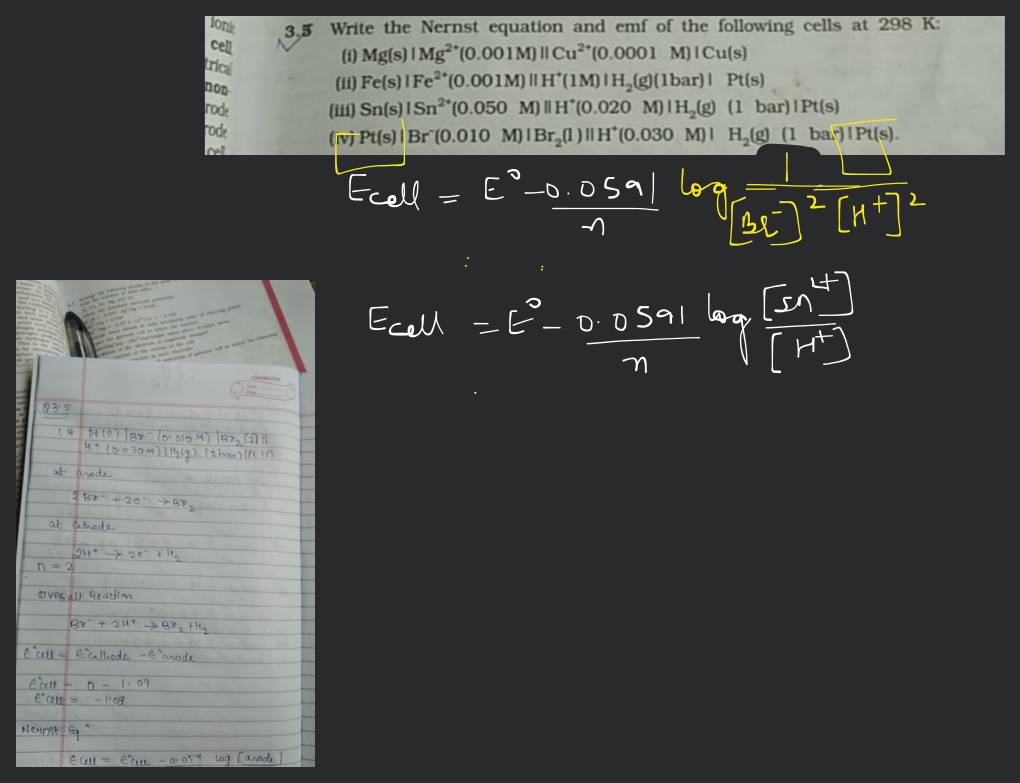 Ionic
cell
trical
non-
rode
rode
cell
3.5 Write the Nernst equation and emf of the following cells at 298 K:
(i) Mg(s)|Mg²⁺(0.001M)||Cu²⁺(0.0001 M)|Cu(s)
(ii) Fe(s)|Fe²⁺(0.001M)||H⁺(1M)|H₂(g)(1bar)| Pt(s)
(iii) Sn(s)|Sn²⁺(0.050 M)||H⁺(0.020 M)|H₂(g) (1 bar)|Pt(s)
(iv) Pt(s)|Br⁻(0.010 M)|Br₂(l)||H⁺(0.030 M)| H₂(g) (1 bar)|Pt(s).
Ecell = E° - 0.0591/n log 1/[Br⁻]² [H⁺]²
Ecell = E° - 0.0591/n log [Sn⁴⁺]/[H⁺]
classmate
Date
Page
Q3.5
(iv) Pt(s) | Br⁻ (0.010 M) | Br₂(l) ||
H⁺ (0.030M) | H₂(g) (1 bar) | Pt(s)
at anode
2Br⁻ + 2e⁻ → Br₂
at cathode
2H⁺ → 2e⁻ + H₂
n = 2
overall reaction
Br⁻ + 2H⁺ → Br₂ + H₂
E°cell = E°cathode - E°anode
E°cell = 0 - 1.09
E°cell = -1.09
Nernst Eqⁿ
Ecell = E°cell - 0.059 log [anode]